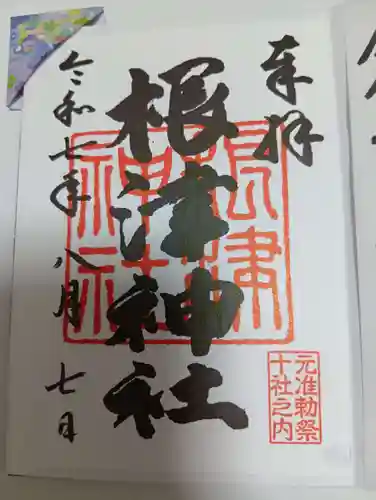 奉拝
根津神社
令和七年八月七日
根津
神社
元准勅祭
十社之内